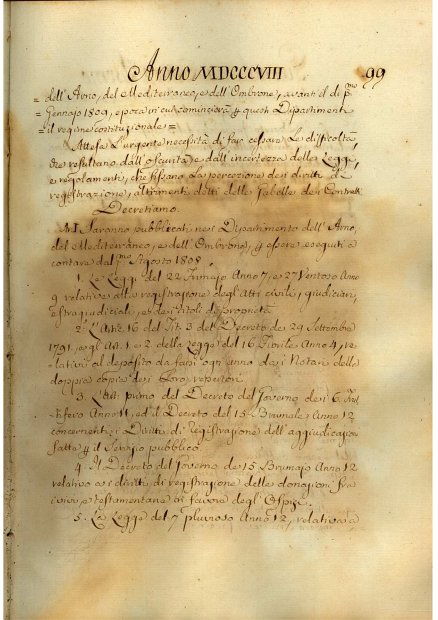 Anno MDCCCVIII 99
= dell'Arno, del Mediterraneo, e dell'Ombrone, avanti il dì p.mo
= Gennajo 1809, epoca in cui comincierà p questi Dipartimenti
= il regime costituzionale =
Attesa l'urgente necessità di far cessare le difficoltà,
che resultano dall'oscurità, e dall'incertezza delle Leggi,
e regolamenti, che fissano la percezione dei diritti di
registrazione, altrimenti detti delle Tabelle dei Contratti
Decretiamo.
Art. I. Saranno pubblicati nei Dipartimenti dell'Arno,
del Mediterraneo, e dell'Ombrone, p essere eseguiti a
contare dal p.mo Agosto 1808
1. Le Leggi del 22 Frimajo Anno 7, e 27 Ventoso Anno
9 relative alla registrazione degli Atti civili, giudiciari,
estragiudiciali, e dei titoli di proprietà
2. L'Art. 16 del Tit. 3 del Decreto de 29 Settembre
1791, e gli Art. 1 e 2 della Legge del 16 Fiorile Anno 4, re
lativi al deposito da farsi ogni anno dai Notari della
doppia copia dei loro repertori
3. L'Art. primo del Decreto del Governo dei 6
Anno 11, ed il Decreto del 15 Brumale Anno 12
concernenti i Diritti di registrazione dell'aggiudicazioni
fatte p il servizio pubblico.
4. Il Decreto del Governo de 15 Brumajo Anno 12
relativo ai diritti di registrazione delle donazioni fra
i vivi, e testamentarie in favore degl'Ospizi.
5. La Legge del 7 pluvioso Anno 12, relativa a